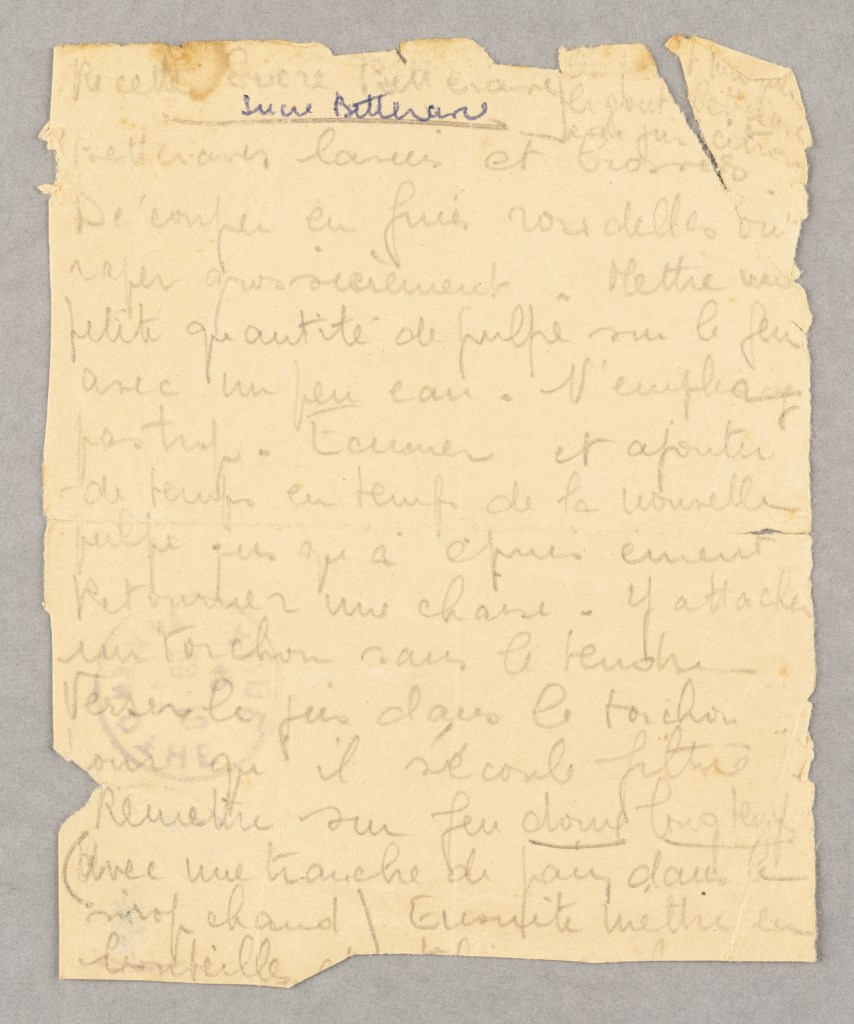 Recette Sucre Betterave
Sucre Betterave
le gout
jus citron
Betteraves lavées et brossées
Découper en fines rondelles ou
raper grossièrement. Mettre une
petite quantité de pulpe sur le feu
avec un peu eau. N'employez
pas trop. Ecumer et ajouter
de temps en temps de la nouvelle
pulpe jusqu'à épuisement
Retourner une chaise. Y attacher
un torchon sans le tendre
Verser le jus dans le torchon
pour qu'il s'écoule filtré.
Remettre sur feu doux longtemps
(avec une tranche de pain dans le
sirop chaud) Ensuite mettre en
bouteille